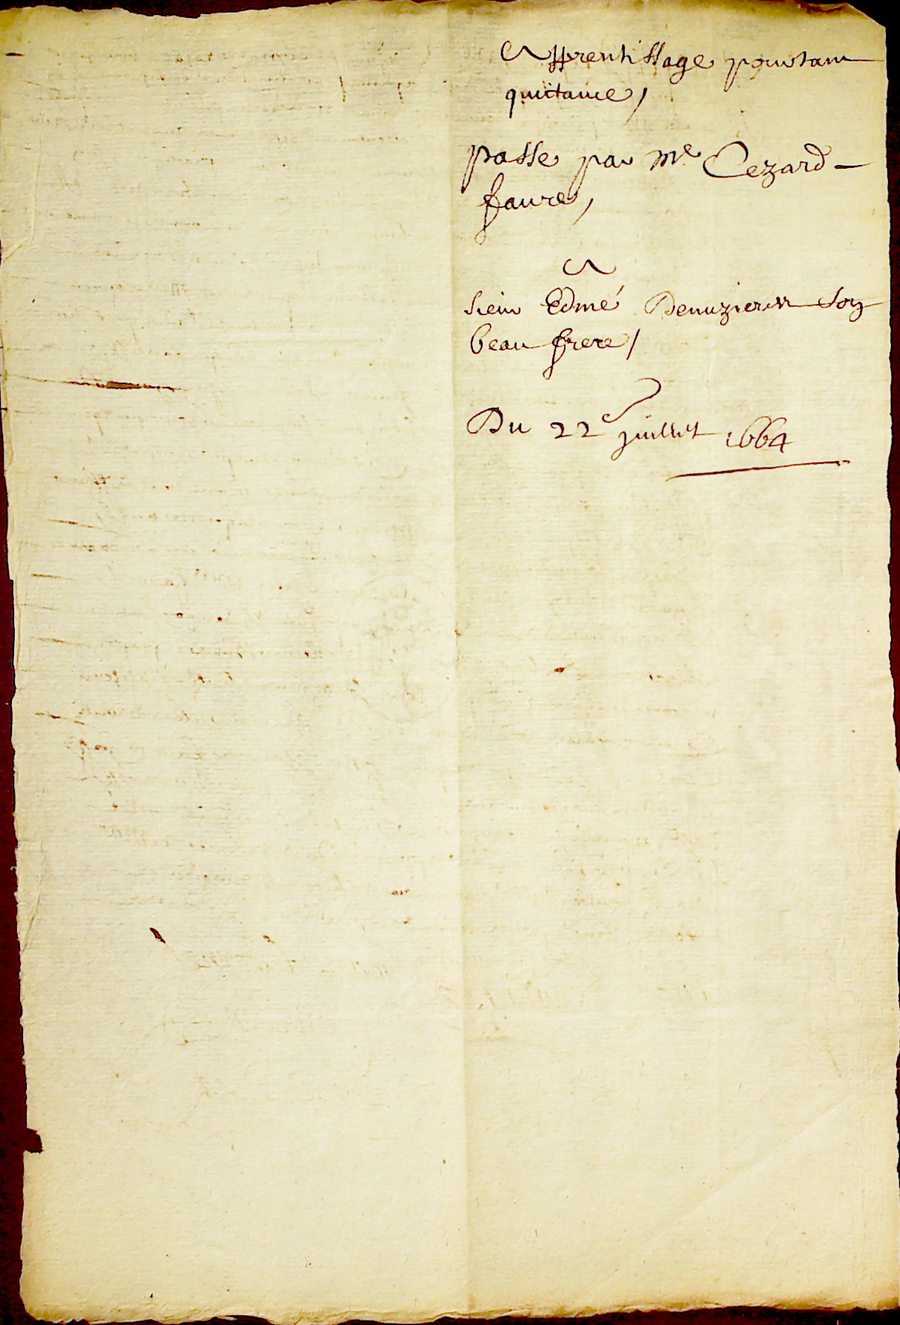 Apprentissage portant
quittance,
passé par Me Cezard
faure,
A
sieur Edmé Denuzieres son
beau frere,
Du 22e juillet 1664